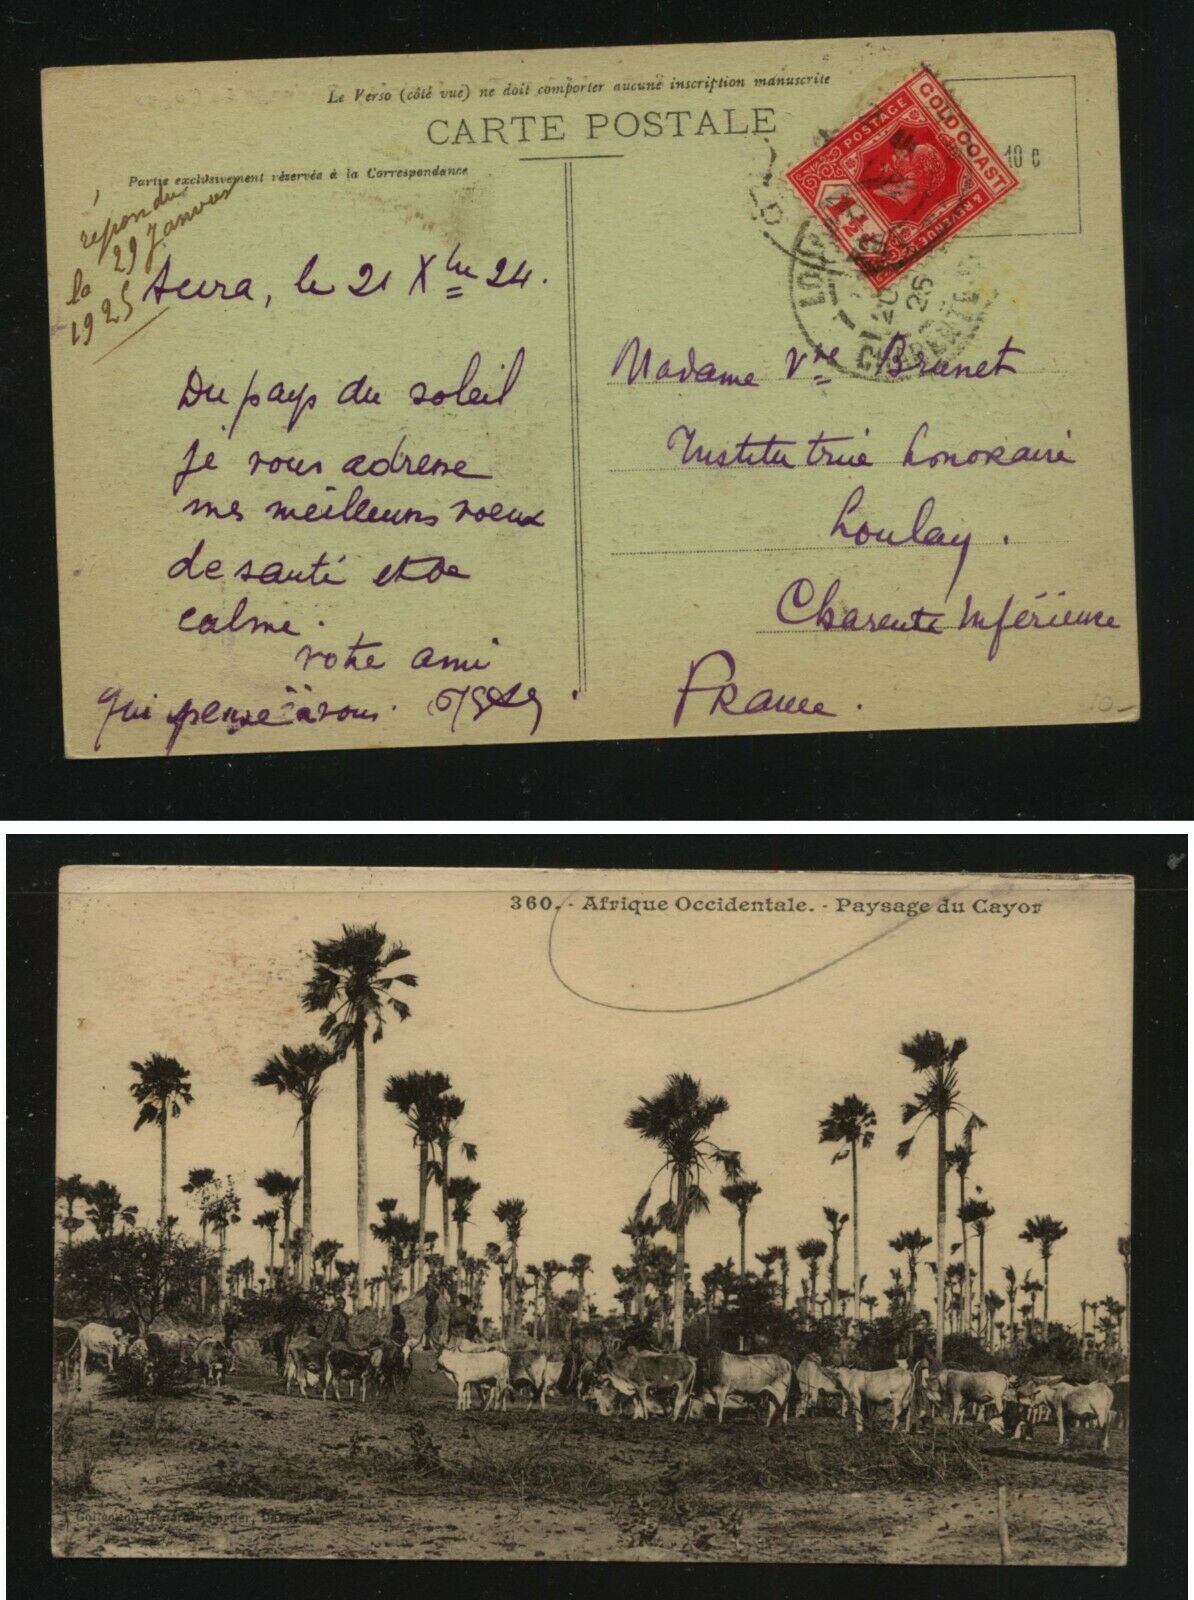 Le Verso (côté vue) ne doit comporter aucune inscription manuscrite
CARTE POSTALE
Partie exclusivement réservée à la Correspondance
répondu
le 29 Janvier
1925
Accra, le 21 Xbre 24.
Du pays du soleil
je vous adresse
mes meilleurs voeux
de santé et de
calme.
votre ami
qui pense à vous.
POSTAGE
GOLD COAST
& REVENUE
1½d
10 c
20
25
Madame Vve Brunet
Institutrice honoraire
Loulay.
Charente Inférieure
France.
10-
360. - Afrique Occidentale. - Paysage du Cayor
Collection Générale Fortier, Dakar